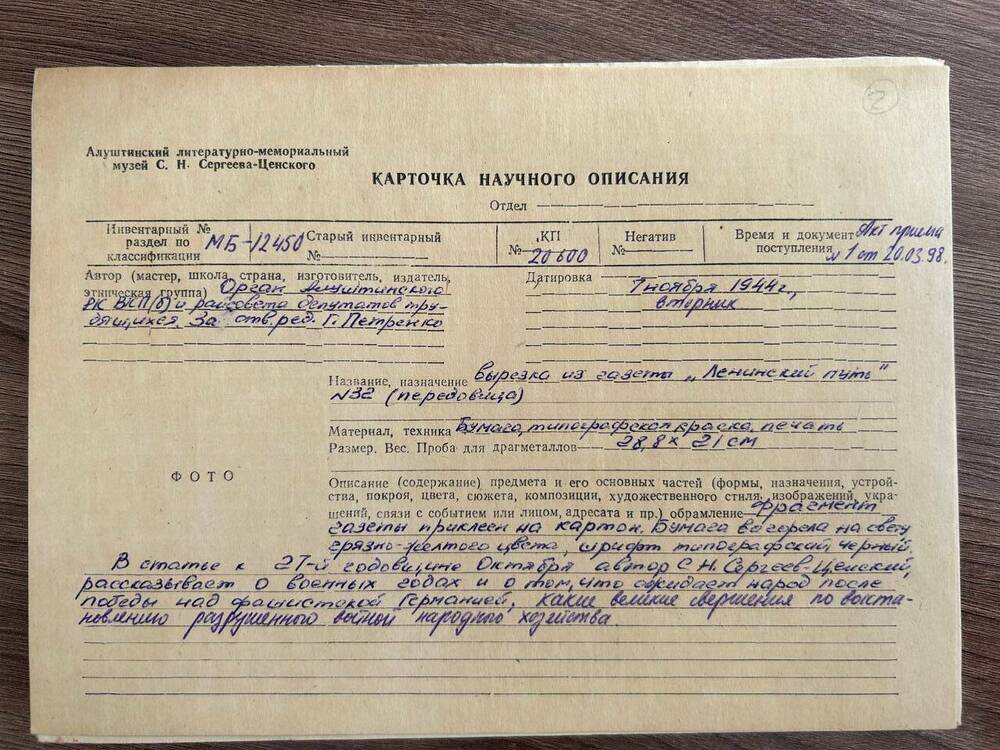 2
Алуштинский литературно-мемориальный
музей С. Н. Сергеева-Ценского
КАРТОЧКА НАУЧНОГО ОПИСАНИЯ
Отдел
Инвентарный №
раздел по
классификации
МБ-12450
Старый инвентарный
№
КП
№ 20600
Негатив
№
Время и документ Акт приема
поступления №1 от 20.03.98.
Автор (мастер, школа, страна, изготовитель, издатель,
этническая группа) Орган Алуштинского
РК ВКП(б) и райсовета депутатов тру-
дящихся. За отв. ред. Г. Петренко
Датировка 7 ноября 1944 г.,
вторник
Название, назначение вырезка из газеты „Ленинский путь"
№32 (передовица)
Материал, техника Бумага, типографская краска, печать
Размер. Вес. Проба для драгметаллов 28,8 х 21 см
ФОТО
Описание (содержание) предмета и его основных частей (формы, назначения, устрой-
ства, покроя, цвета, сюжета, композиции, художественного стиля, изображений, укра-
шений, связи с событием или лицом, адресата и пр.) обрамление фрагмент
газеты приклеен на картон. Бумага выгорела на свету
грязно-желтого цвета, шрифт типографский, черный.
В статье к 27-й годовщине Октября автор С.Н. Сергеев-Ценский,
рассказывает о военных годах и о том, что ожидает народ после
победы над фашистской Германией, какие великие свершения по восста-
новлению разрушенного войной народного хозяйства.